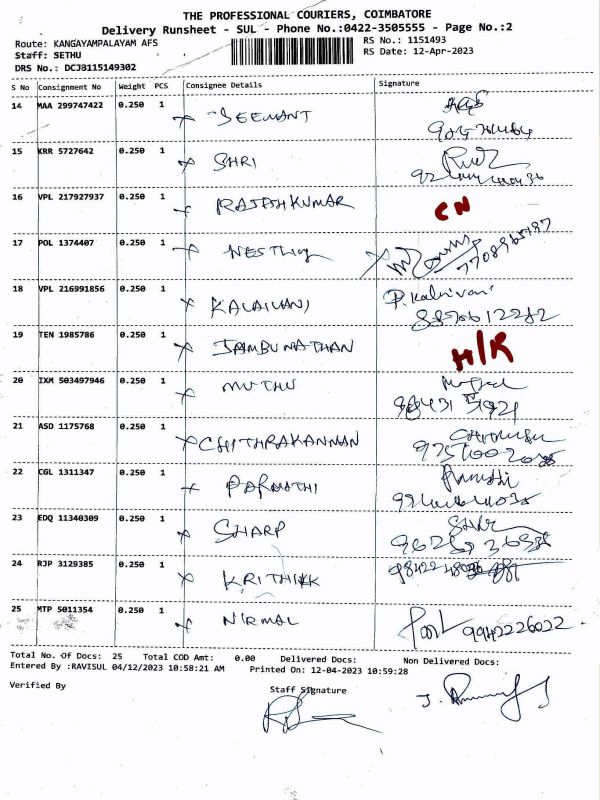 THE PROFESSIONAL COURIERS, COIMBATORE
Delivery Runsheet - SUL - Phone No.:0422-3505555 - Page No.:2
Route: KANGAYAMPALAYAM AFS
RS No.: 1151493
Staff: SETHU
RS Date: 12-Apr-2023
DRS No.: DCJB115149302
S No Consignment No Weight PCS Consignee Details Signature
14 MAA 299747422 0.250 1 JEEWANT
15 KRR 5727642 0.250 1 SHRI
16 VPL 217927937 0.250 1 RAJESHKUMAR CN
17 POL 1374407 0.250 1 7708965787
18 VPL 216991856 0.250 1 KALAIVANI P. Kalaivani
8870612282
19 TEN 1985786 0.250 1 JAMBUNATHAN H/R
20 IXM 503497946 0.250 1 MUTHU
98431 51921
21 ASD 1175768 0.250 1 CHITHRAKANNAN
22 CGL 1311347 0.250 1 PARVATHI
23 EDQ 11340309 0.250 1 SHARP
24 RJP 3129385 0.250 1 KRITHIKK
25 MTP 5011354 0.250 1 NIRMAL 9942226022
Total No. Of Docs: 25 Total COD Amt: 0.00 Delivered Docs: Non Delivered Docs:
Entered By :RAVISUL 04/12/2023 10:58:21 AM Printed On: 12-04-2023 10:59:28
Verified By
Staff Signature